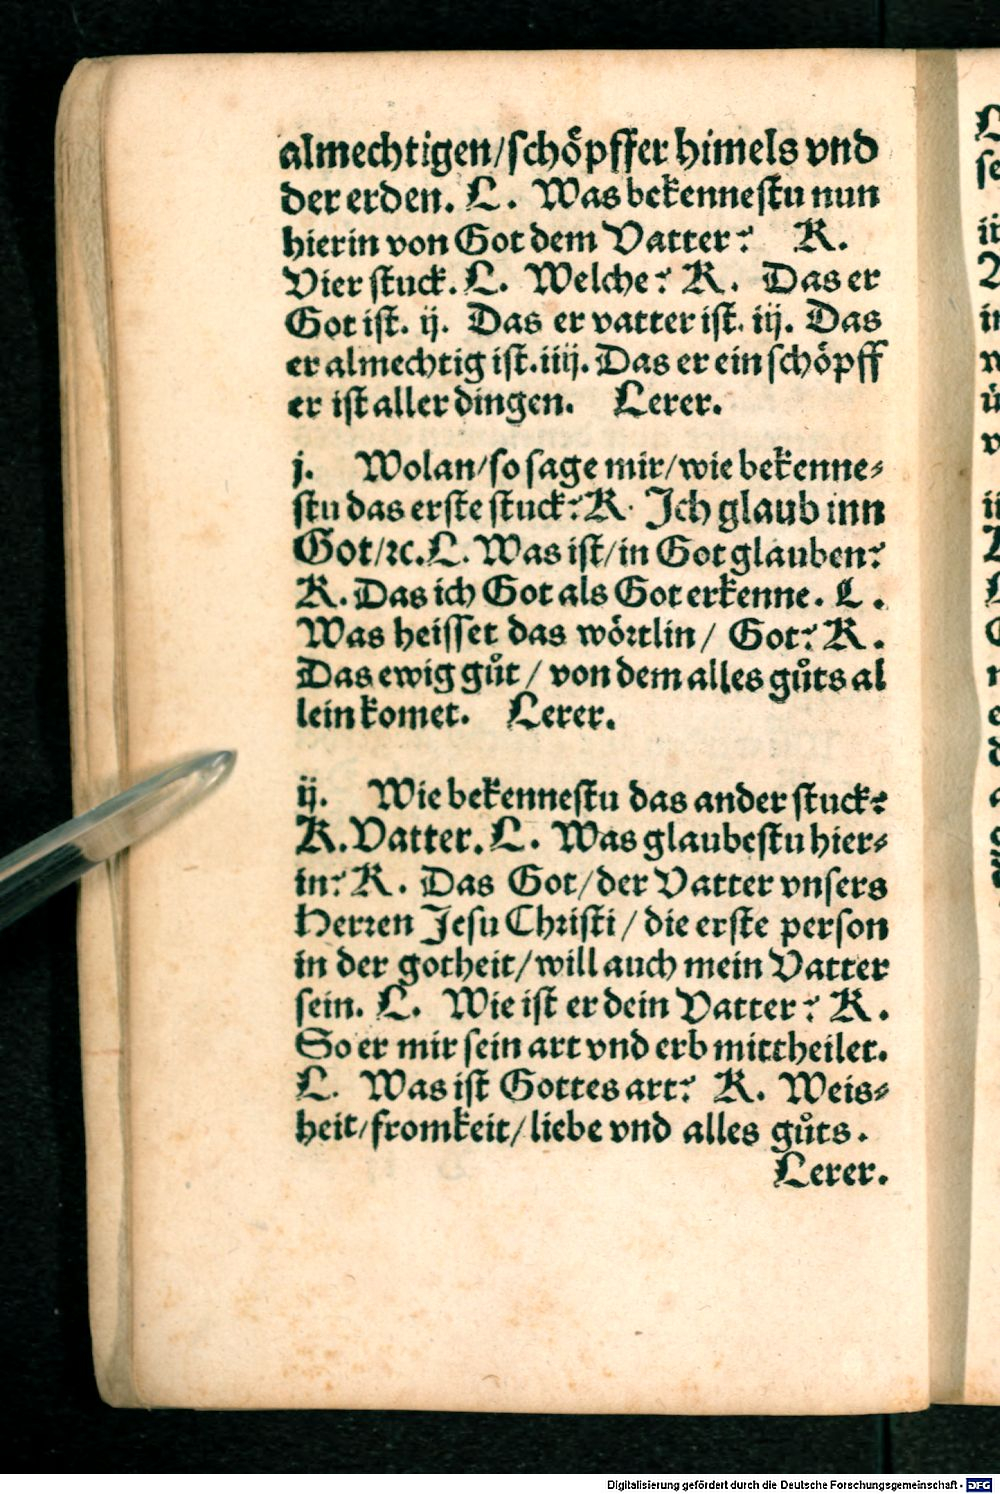 almechtigen/schöpffer himels vnd
der erden. L. Was bekennestu nun
hierin von Got dem Vatter? K.
Vier stuck. L. Welche? K. Das er
Got ist. ij. Das er vatter ist. iij. Das
er almechtig ist. iiij. Das er ein schöpff
er ist aller dingen. Lerer.
j. Wolan/so sage mir/wie bekenne-
stu das erste stuck? K. Ich glaub inn
Got/ꝛc. L. Was ist/in Got glauben?
K. Das ich Got als Got erkenne. L.
Was heisset das wörtlin/ Got? K.
Das ewig gůt / von dem alles gůts al
lein komet. Lerer.
ij. Wie bekennestu das ander stuck?
K. Vatter. L. Was glaubestu hier-
in? K. Das Got/der Vatter vnsers
Herren Jesu Christi / die erste person
in der gotheit/will auch mein Vatter
sein. L. Wie ist er dein Vatter? K.
So er mir sein art vnd erb mittheilet.
L. Was ist Gottes art? K. Weis-
heit/fromkeit/liebe vnd alles gůts.
Lerer.
Digitalisierung gefördert durch die Deutsche Forschungsgemeinschaft - DFG